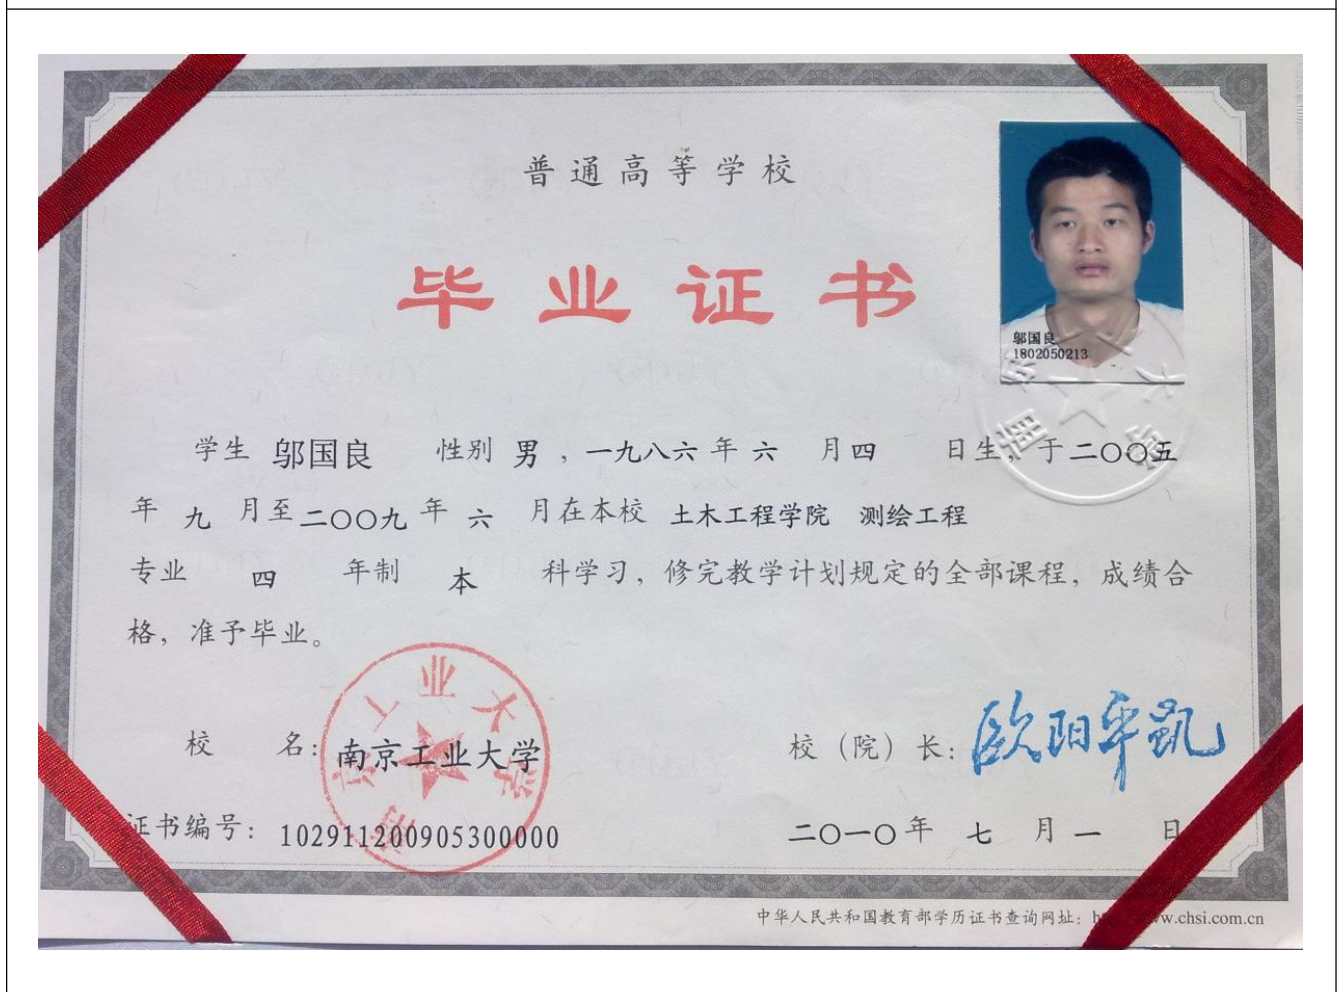 普通高等学校
毕业证书
邬国良
1802050213
学生 邬国良 性别 男，一九八六年六月四日生，于二〇〇五
年九月至二〇〇九年六月在本校 土木工程学院 测绘工程
专业 四 年制 本 科学习，修完教学计划规定的全部课程，成绩合
格，准予毕业。
校 名：南京工业大学
校（院）长：欧阳平凯
南京工业大学
证书编号：102911200905300000
二〇一〇年七月一日
中华人民共和国教育部学历证书查询网址：h w.chsi.com.cn